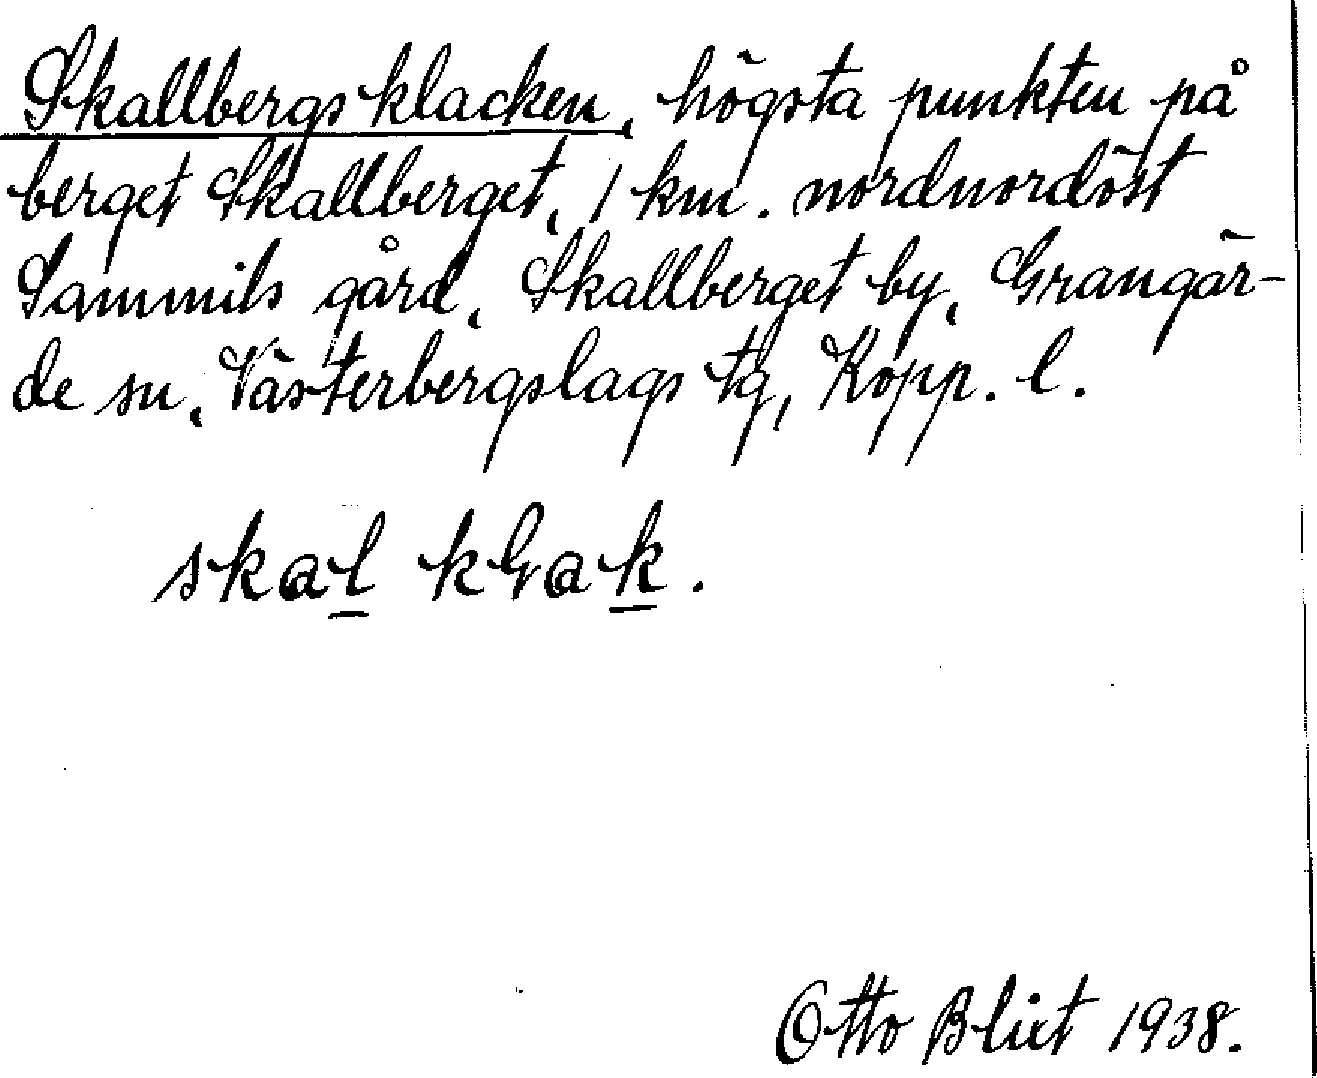 Skallbergsklacken, högsta punkten på
berget Skallberget, 1 km. nordnordöst
Sammils gård, Skallberget by, Grangär-
de sn, Västerbergslags tg, Kopp. l.
skal klak.
Otto Blixt 1938.